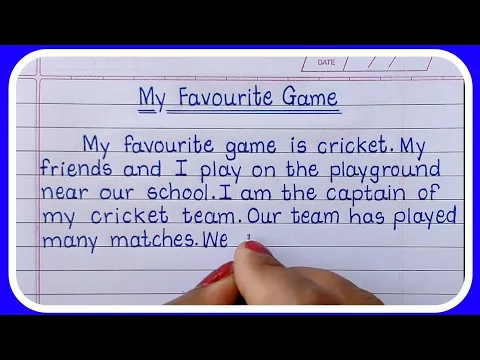 DATE
My Favourite Game
My favourite game is cricket. My
friends and I play on the playground
near our school. I am the captain of
my cricket team. Our team has played
many matches. We